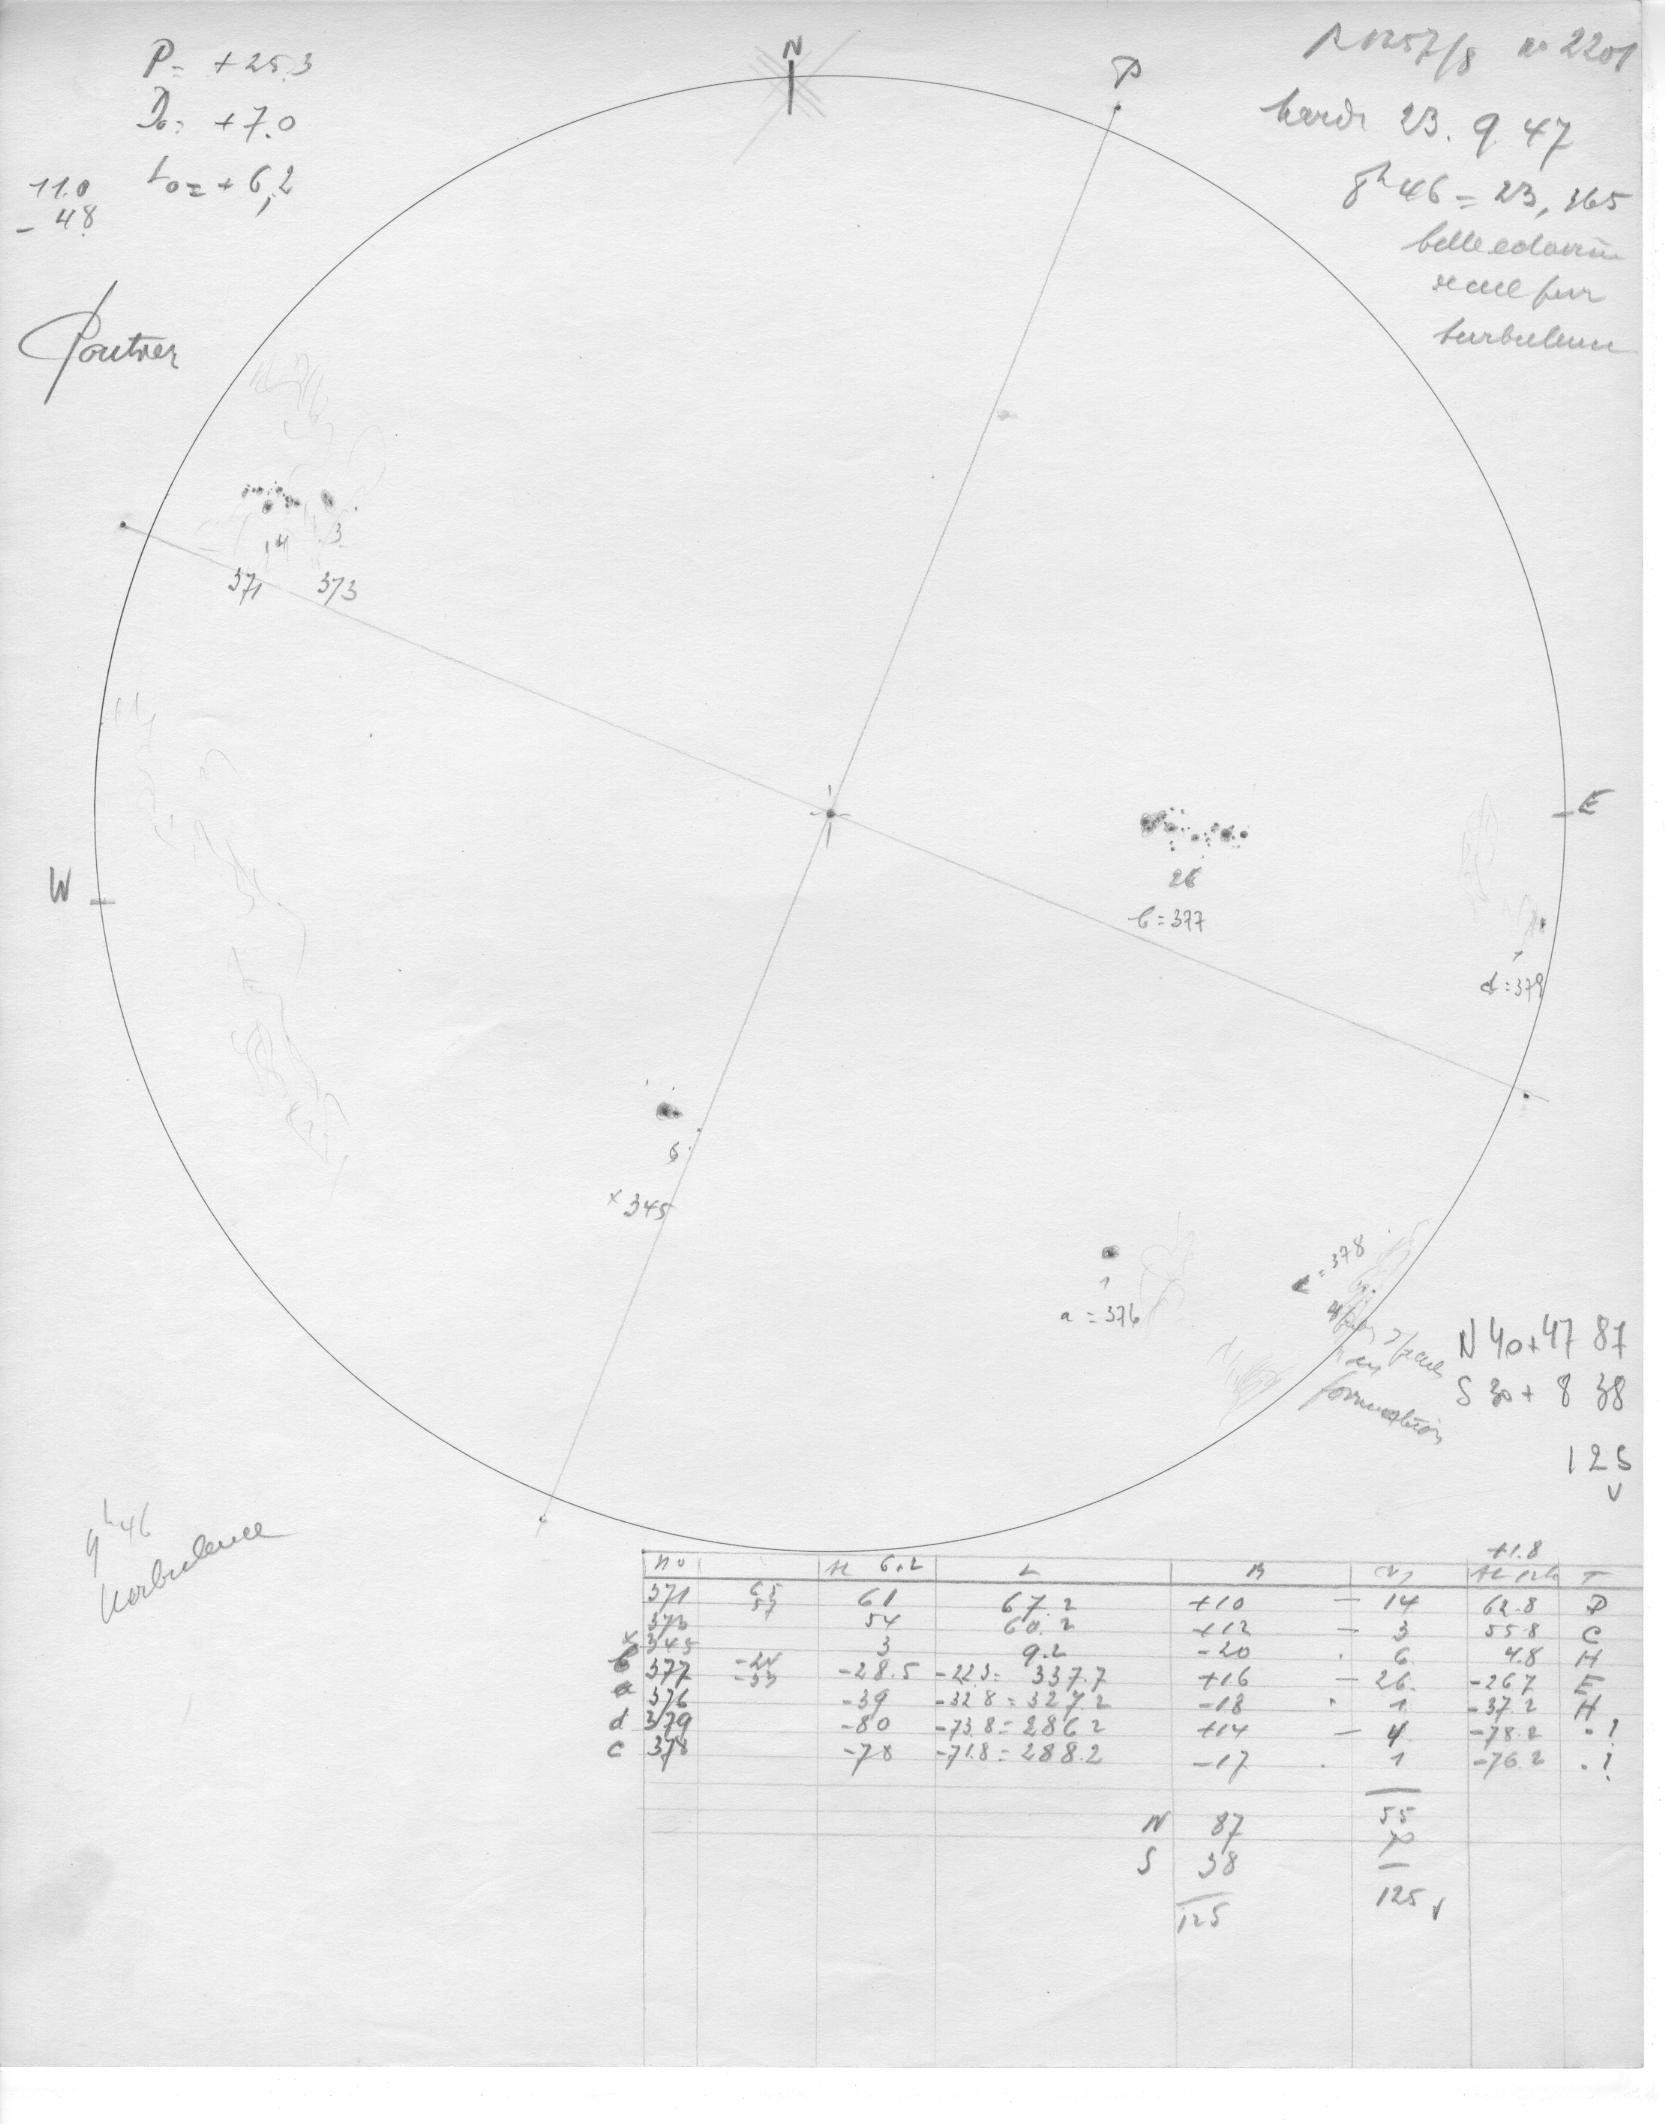 P= +25.3
Do= +7.0
Lo= +6,2
11.0
- 48
N
P
1257/8 no 2201
Mardi 23. 9 47
8h 46 = 23, 365
belle
turbulence
14
3
371
373
W
E
26
b=377
1
d=379
6
x 345
1
a = 376
c=378
4
en
formation
N 40+47 87
S 30+ 8 38
125
v
9h46
turbulence
+1.8
no M 6.2 L B T
371 65 57 61 67.2 +10 - 14 62.8 D
373 54 60.2 +12 - 3 55.8 C
x 345 3 9.2 -20 . 6 4.8 H
b 377 -24 -33 -28.5 -22.3= 337.7 +16 - 26 -26.7 E
a 376 -39 -32.8 = 327.2 -18 . 1 -37.2 H
d 379 -80 -73.8 = 286.2 +14 - 4 -78.2 . !
c 378 -78 -71.8 = 288.2 -17 . 1 -76.2 . !
N 87 55
S 38
125 125 v